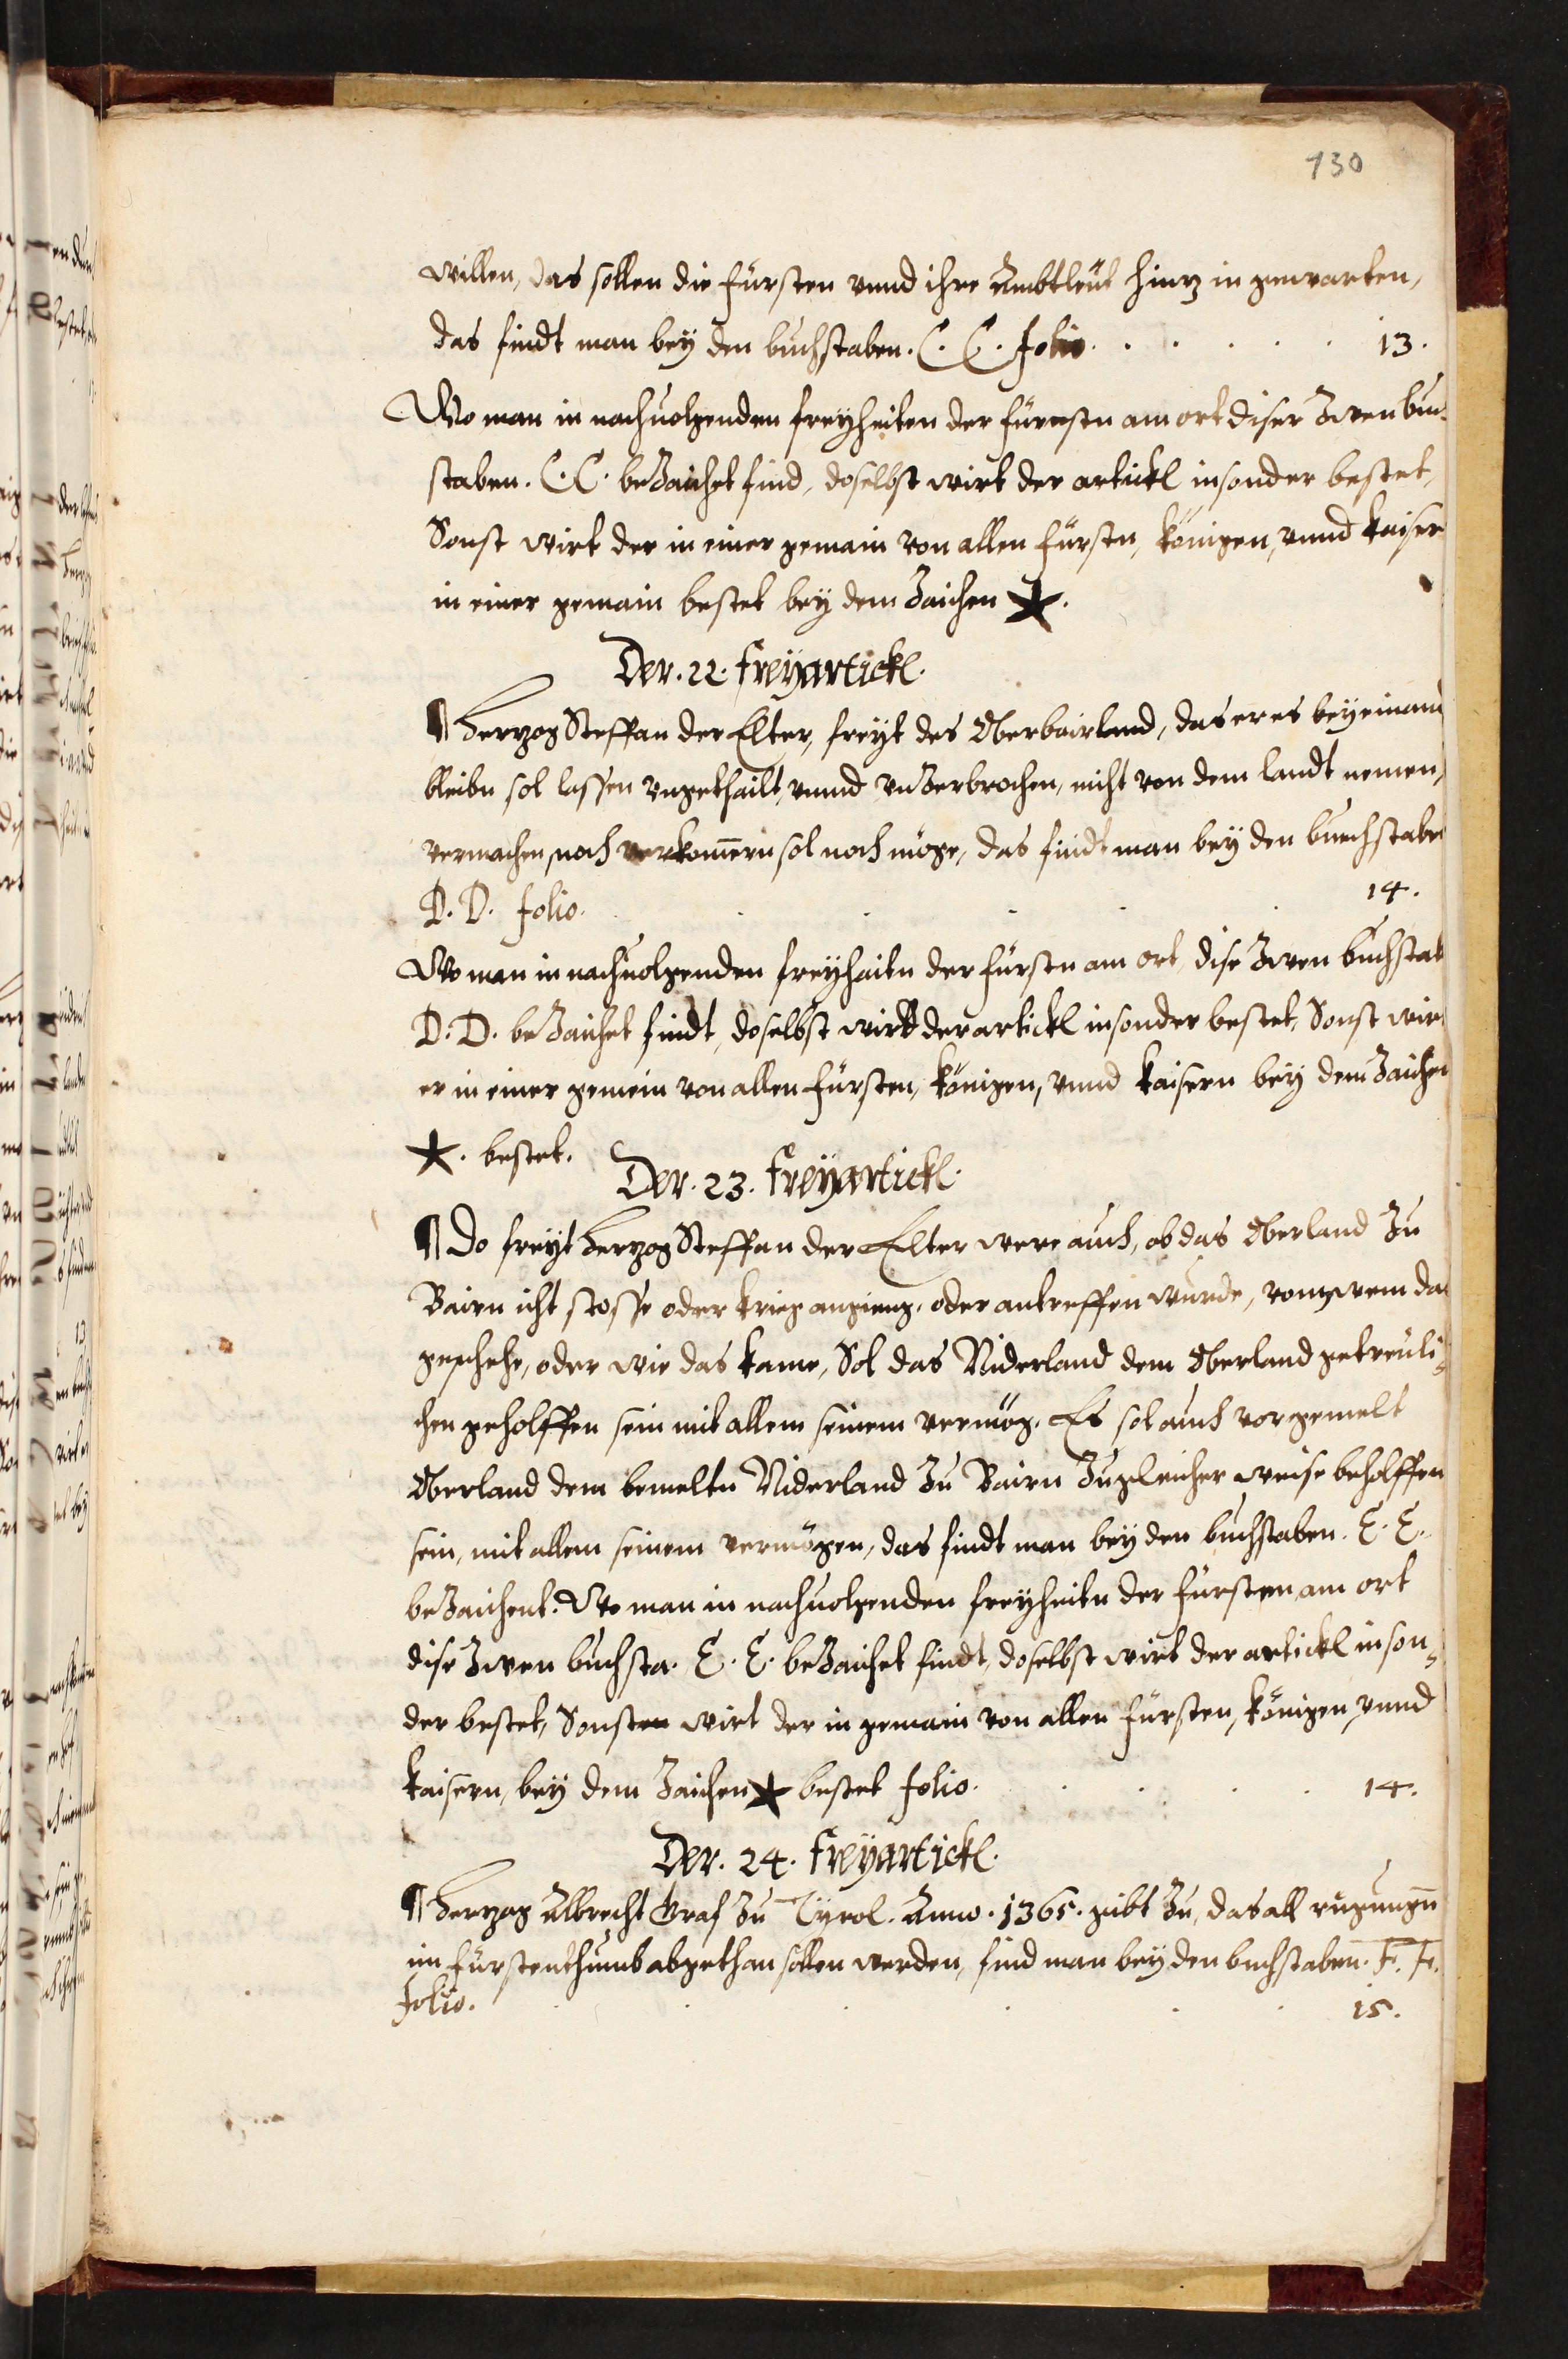 130
willen, das sollen die fürsten vnnd ihre Ambtleüt hintz in gewarten,
das findt man bey den buchstaben. C. C. folio. . . . . . 13.
Wo man in nachuolgenden freyheiten der fürrstn am ort diser zwen buc
staben. C. C. bezaichet find, doselbst wirt der artickl in sonder bestet,
Sonst wirt der in einer gemain von allen fürstn, königen, vnnd kaiser
in einer gemain bestet bey dem zaichen ★.
Der. 22. freyartickl.
¶ Hertzog Steffan der Elter, freyt des Oberbairland, das er es bey einand
bleibn sol lassen vngethailt, vnnd vnzerbrochen, nicht von dem landt nemen,
vermachen, noch verkomern sol noch möge, das findt man bey den buechstabe
D. D. folio. . . . . 14.
Wo man in nachuolgenden freyhaitn der fürstn am ort dise zwen buchstab
D. D. bezaichet findt, doselbst wirtt der artickl in sonder bestet, Sonst wir
er in einer gemein von allen fürsten, königen, vnnd kaisern bey dem zaichen
★. bestet.
Der. 23. freyartickl.
¶ Do freyt Hertzog Steffan der Elter were auch, ob das Oberland zu
Bairn icht stosse oder krieg angieng, oder antreffen wurde, von wem da
geschehe, oder wie das kame, Sol das Niderland dem Oberland getreuli-
chen geholffen sein mit allem seinem vermög. Es sol auch vorgemelt
Oberland dem bemeltn Niderland zu Bairn zugleicher weise beholffen
sein, mit allem seinem vermögen, das findt man bey den buchstaben. E. E.
bezaichent. Wo man in nachuolgenden freyheitn der fürsten am ort
dise zwen buchsta. E. E. bezaichet findt, doselbst wirt der artickl in son-
der bestet, Sonsten wirt der in gemain von allen fürsten, königen, vnnd
kaisern, bey dem zaichen ★ bestet folio. . . . . 14.
Der. 24. freyartickl.
¶ Hertzog Albrecht Graf zu Tyrol. Anno. 1365. gibt zu, das all rugungn
im fürstenthumb abgethan sollen werden, find man bey den buchstaben. F. F.
folio. . . . . 15.